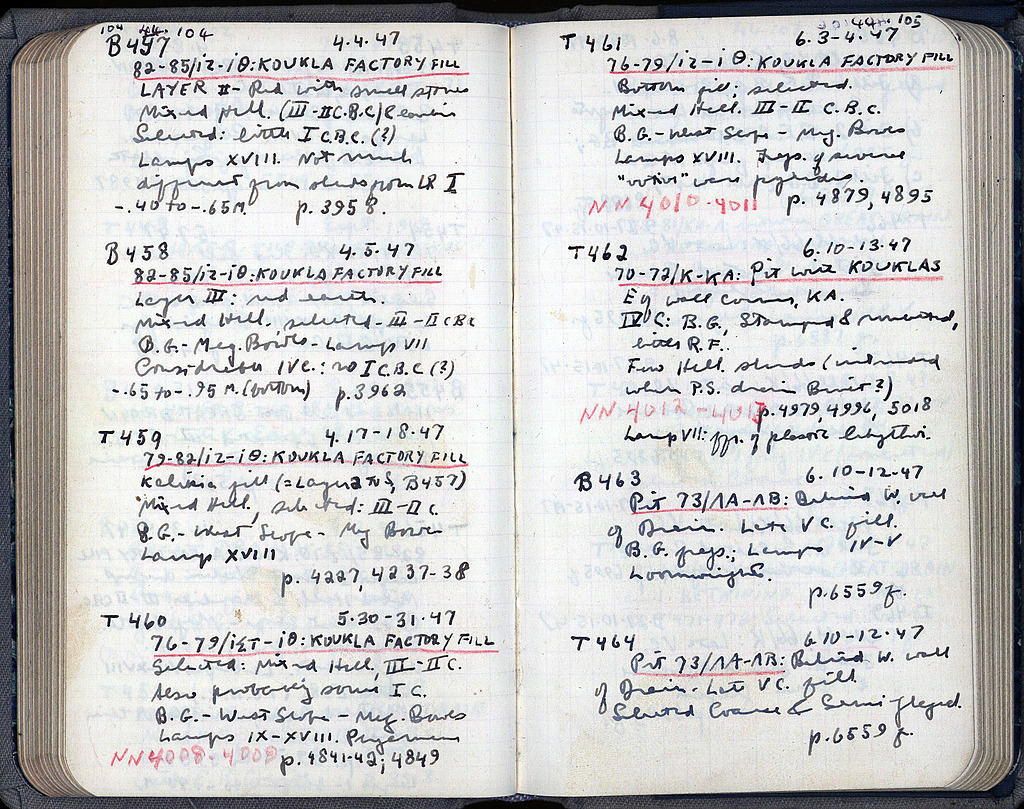 104 104
B457 4.4.47
82-85/ΙΖ-ΙΘ: KOUKLA FACTORY FILL
LAYER II - Red with small stones
Mixed Hell. (III-II C.B.C.)
Selected: little I C.B.C. (?)
Lamps XVIII. Not much
different from sherds from LR I
-.40 to -.65 M. p. 3958.
B458 4.5.47
82-85/ΙΖ-ΙΘ: KOUKLA FACTORY FILL
Layer III: red earth.
Mixed Hell. selected - III-II C.B.C
B.G. - Meg. Bowls - Lamps VII
Considerable IV C.: no I C.B.C (?)
-.65 to -.95 M. (bottom) p. 3962
T459 4.17-18.47
79-82/ΙΖ-ΙΘ: KOUKLA FACTORY FILL
fill (= Layer B457)
Mixed Hell., selected: III-II C.
B.G. - West Slope - Meg Bowls
Lamps XVIII
p. 4227, 4237-38
T460 5.30-31.47
76-79/ΙΣΤ-ΙΘ: KOUKLA FACTORY FILL
Selected: Mixed Hell, III-II C.
Also probably some I C.
B.G. - West Slope - Meg. Bowls
Lamps IX-XVIII. Pergamene
NN 4008-4009 p. 4841-42; 4849
105
T461 6.3-4.47
76-79/ΙΖ-ΙΘ: KOUKLA FACTORY FILL
Bottom fill; selected.
Mixed Hell. III-II C.B.C.
B.G. - West Slope - Meg. Bowls
Lamps XVIII. Frags. of several
"votive" ware pyxides.
NN 4010-4011 p. 4879, 4895
T462 6.10-13.47
70-72/Κ-ΚΑ: Pit with KOUKLAS
E of wall corner, ΚΑ.
IV C: B.G., Stamped & rouletted,
little R.F.
Few Hell. sherds (introduced
when P.S. drain Built?)
NN 4012-4013 p. 4979, 4996, 5018
Lamp VII: frr. of plastic lekythoi.
B463 6.10-12.47
Pit 73/ΛΑ-ΛΒ: Behind W. wall
of Drain. Late V C. fill.
B.G. frags.; Lamps IV-V
Loomweights.
p. 6559 f.
T464 6.10-12.47
Pit 73/ΛΑ-ΛΒ: Behind W. wall
of Drain. Late V C. fill
Selected Coarse & Semi glazed.
p. 6559 f.